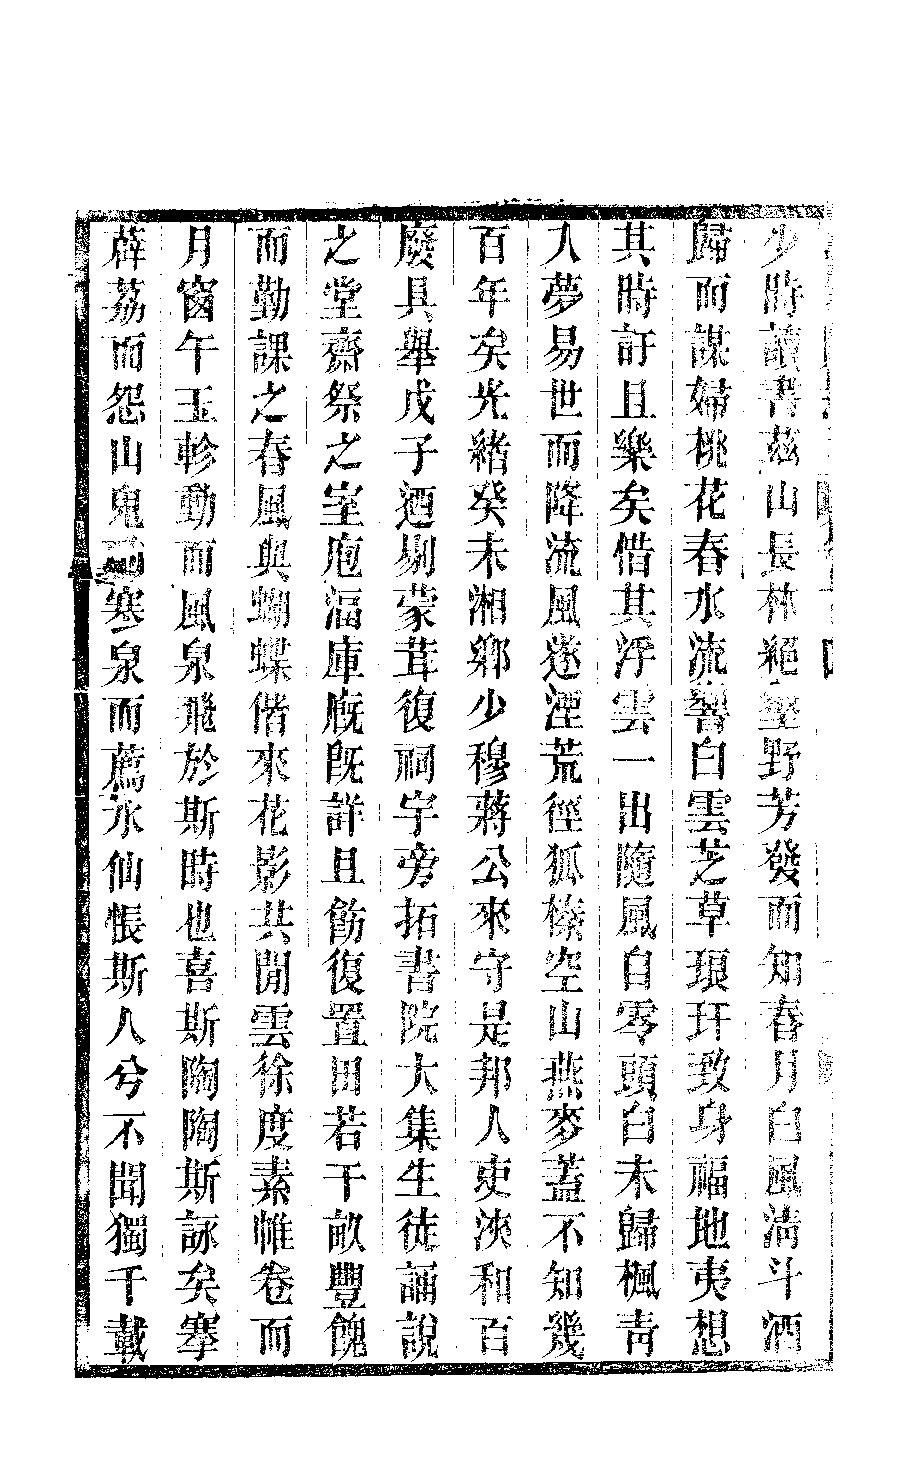 少時讀書茲山長林絕壑野芳發而知春月白風淸斗酒
歸而謀婦桃花春水流響白雲芝草琅玕致身福地夷想
其時訏且樂矣惜其浮雲一出隨風自零頭白未歸楓靑
入夢易世而降流風遂湮荒徑狐榛空山燕麥蓋不知幾
百年矣光緒癸未湘鄉少穆蔣公來守是邦人吏浹和百
廢具舉戊子迺剔蒙茸復祠宇旁拓書院大集生徒誦說
之堂齋祭之室庖湢庫廐旣詳且飭復置田若干畝豐餽
而勤課之春風與蝴蝶偕來花影共閒雲徐度素帷卷而
月窗午玉軫動而風泉飛於斯時也喜斯陶陶斯詠矣搴
薜荔而怨山鬼酌寒泉而薦水仙悵斯人兮不聞獨千載